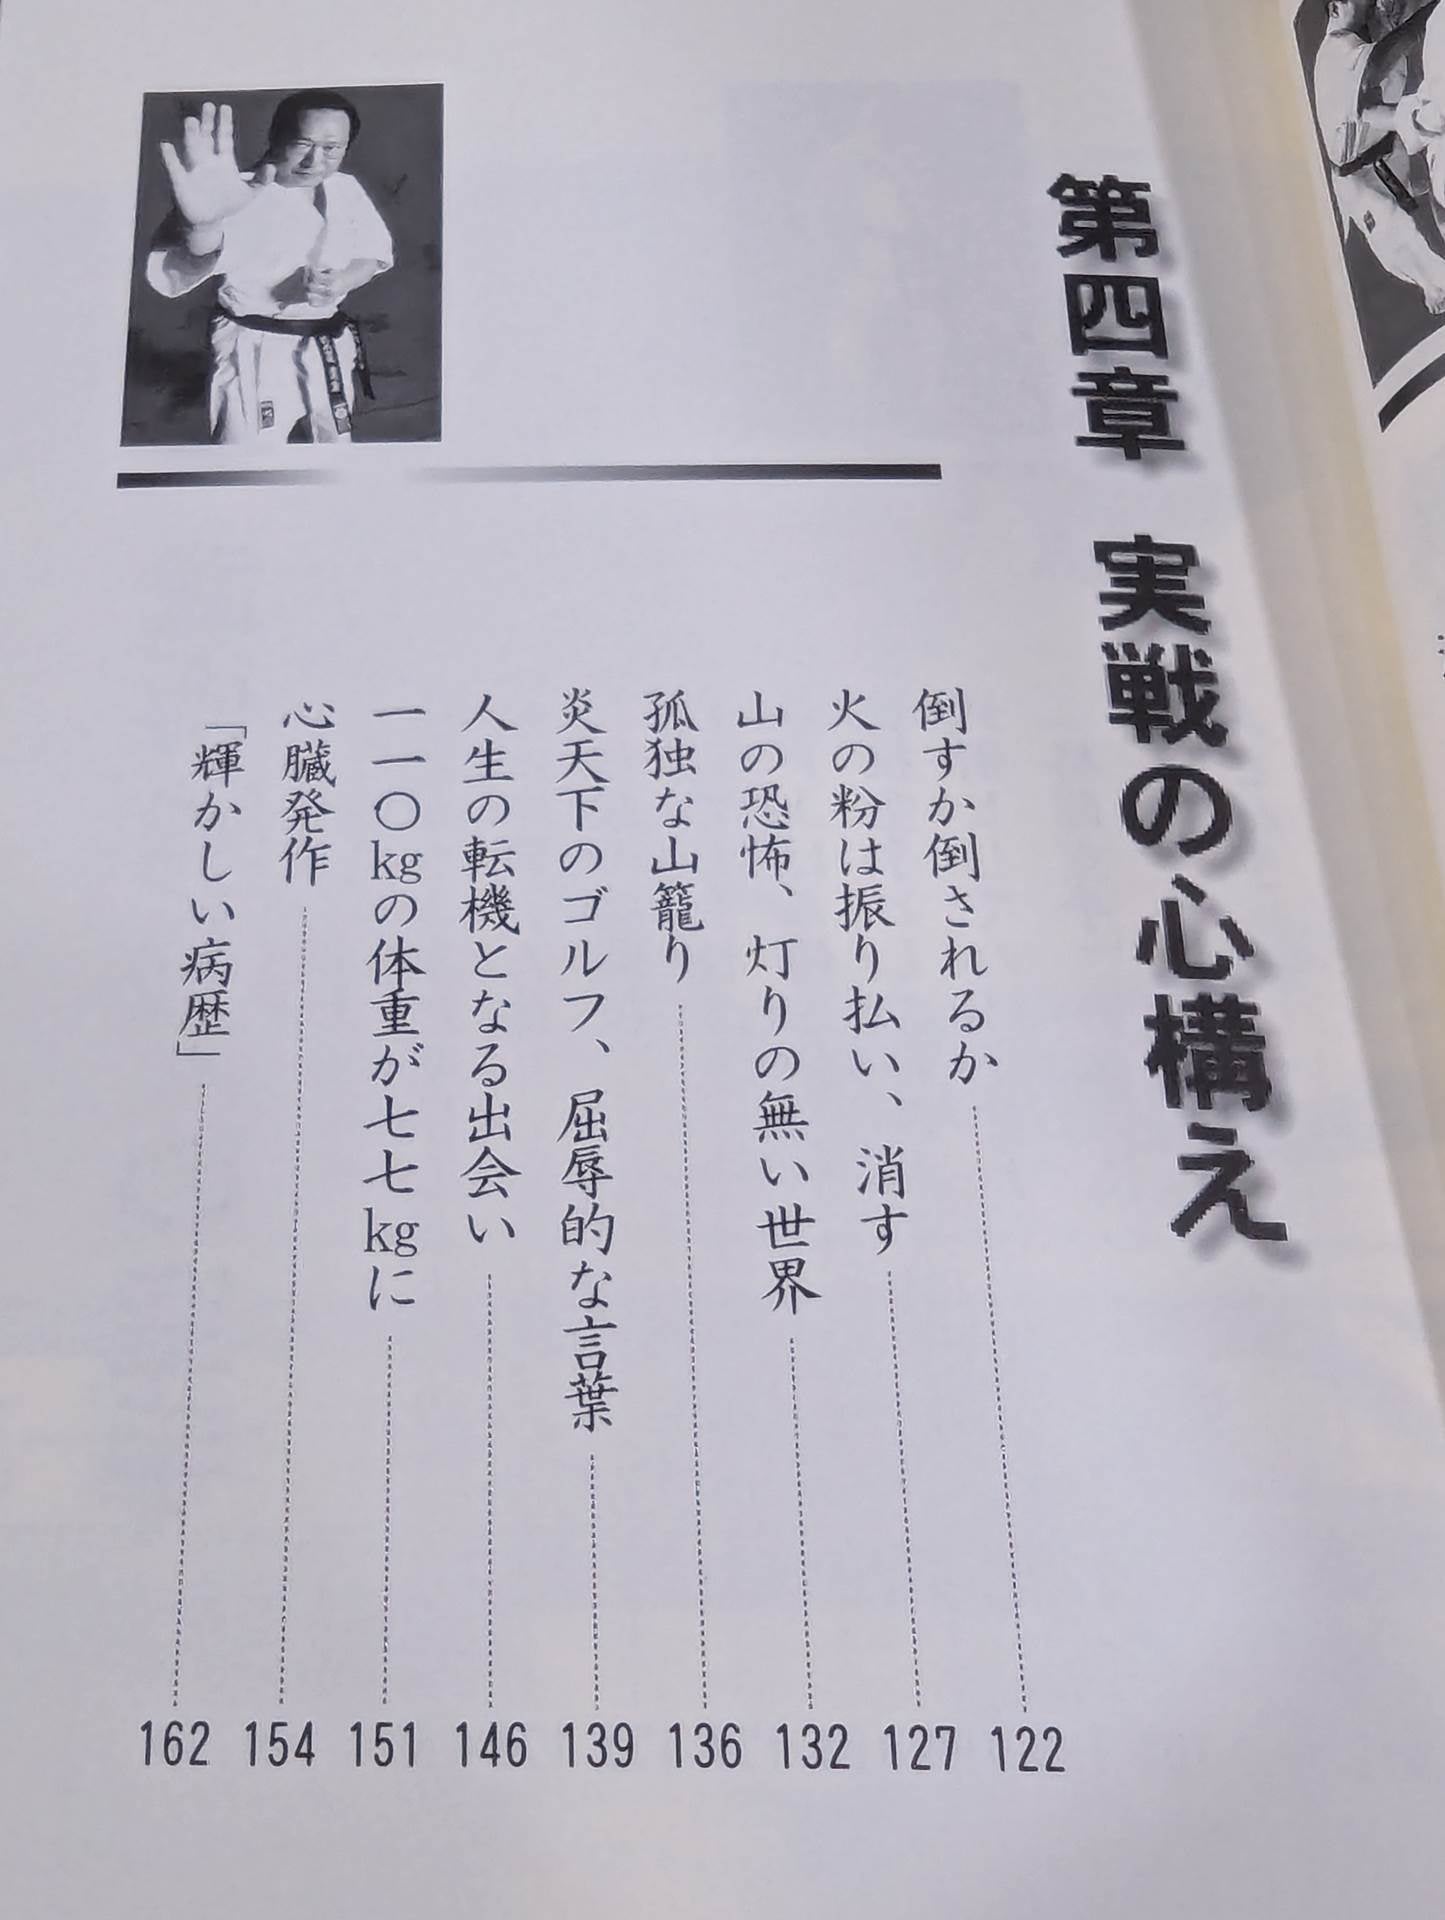 第四章 実戦の心構え
倒すか倒されるか 122
火の粉は振り払い、消す 127
山の恐怖、灯りの無い世界 132
孤独な山籠り 136
炎天下のゴルフ、屈辱的な言葉 139
人生の転機となる出会い 146
一一〇kgの体重が七七kgに 151
心臓発作 154
「輝かしい病歴」 162